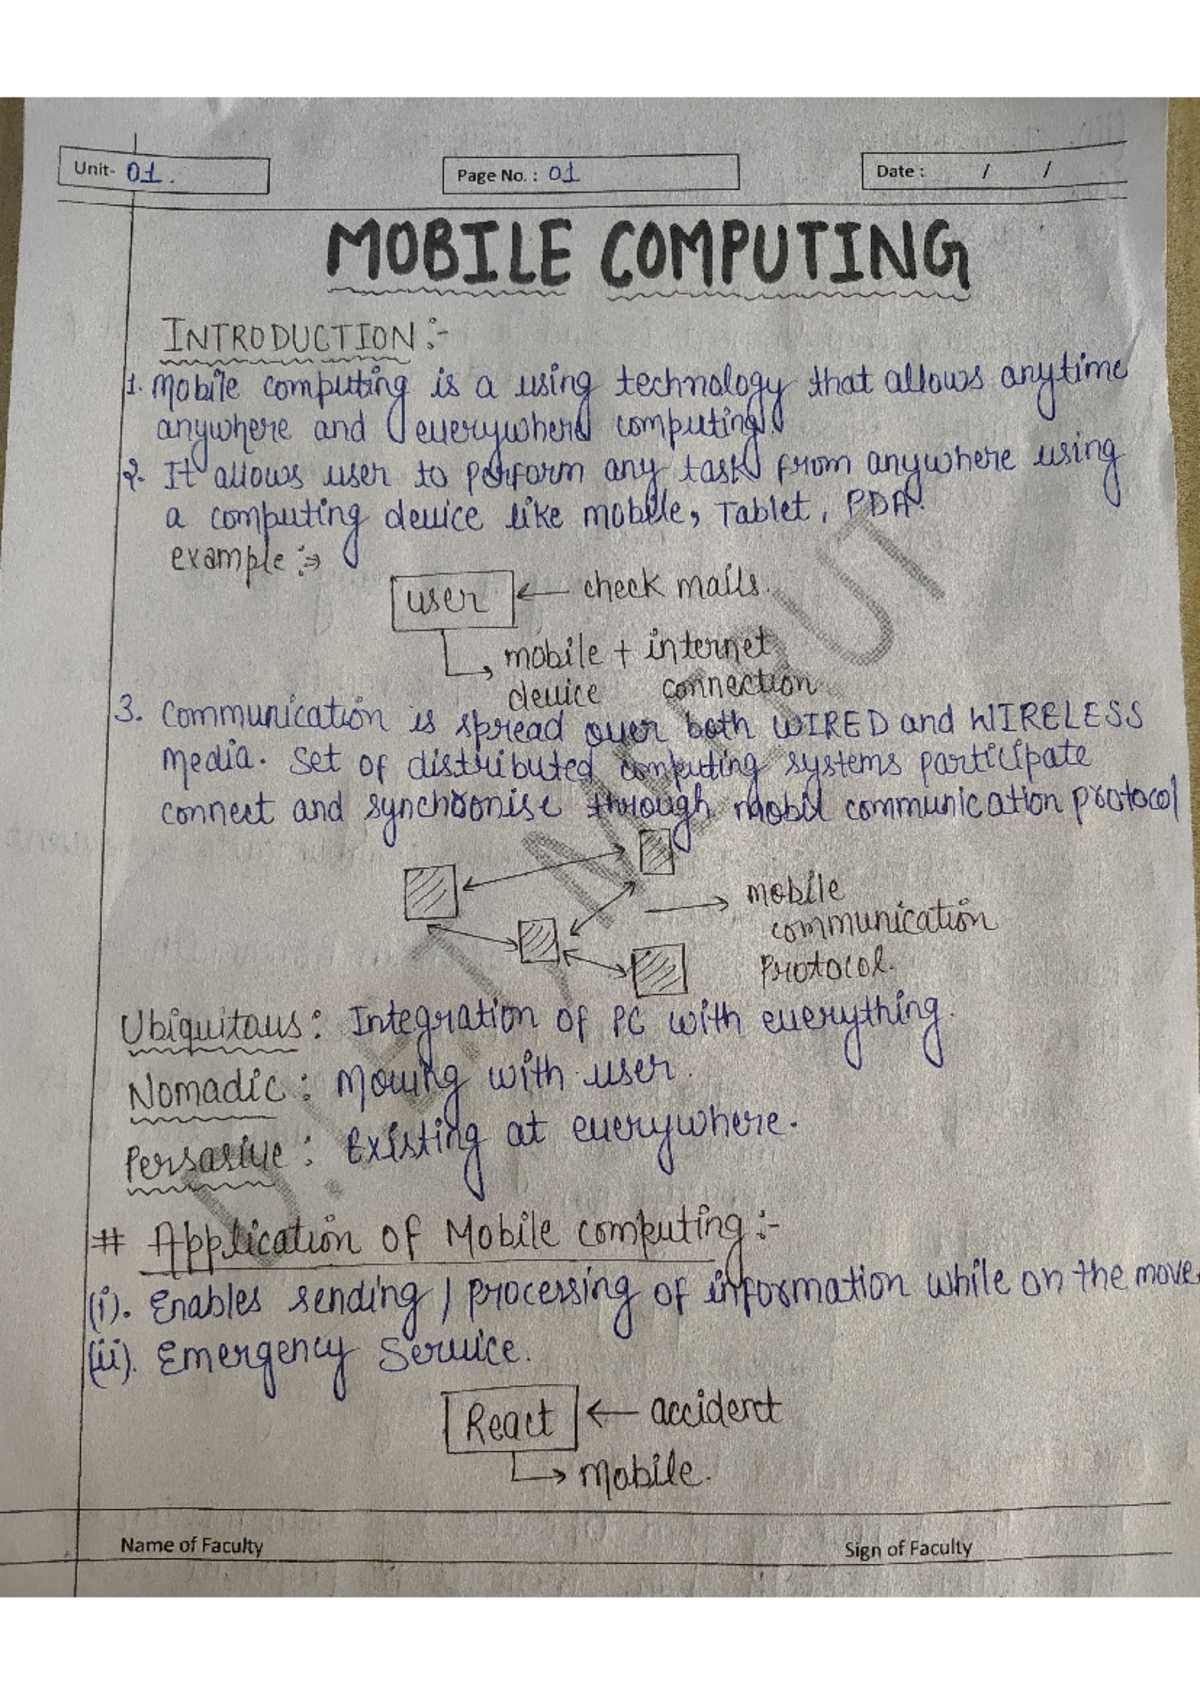 Unit- 01.
Page No. : 01
Date : / /
MOBILE COMPUTING
INTRODUCTION :-
1. Mobile computing is a using technology that allows anytime
anywhere and everywhere computing.
2. It allows user to perform any task from anywhere using
a computing device like mobile, Tablet, PDA.
example :⇒
user ← check mails.
mobile + internet
device connection
3. Communication is spread over both WIRED and WIRELESS
Media. Set of distributed computing systems participate
connect and synchronise through mobil communication protocol
mobile
communication
Protocol.
Ubiquitous : Integration of PC with everything.
Nomadic : Moving with user.
Persasive : Existing at everywhere.
# Application of Mobile computing :-
(i). Enables sending / processing of information while on the move.
(ii). Emergency Service.
React ← accident
→ Mobile.
Name of Faculty
Sign of Faculty